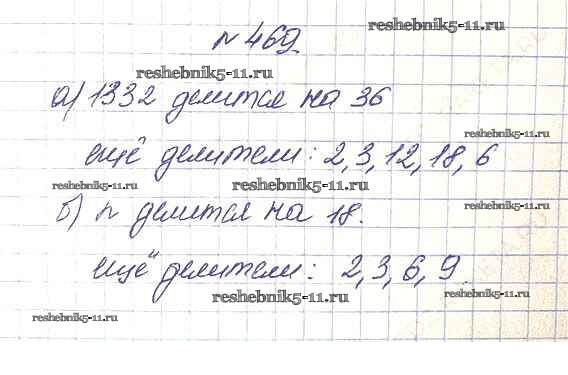 reshebnik5-11.ru
№ 469
reshebnik5-11.ru
а) 1332 делится на 36
reshebnik5-11.ru
ещё делители: 2, 3, 12, 18, 6
reshebnik5-11.ru reshebnik5-11.ru
reshebnik5-11.ru
б) n делится на 18.
ещё делители: 2, 3, 6, 9
reshebnik5-11.ru
reshebnik5-11.ru